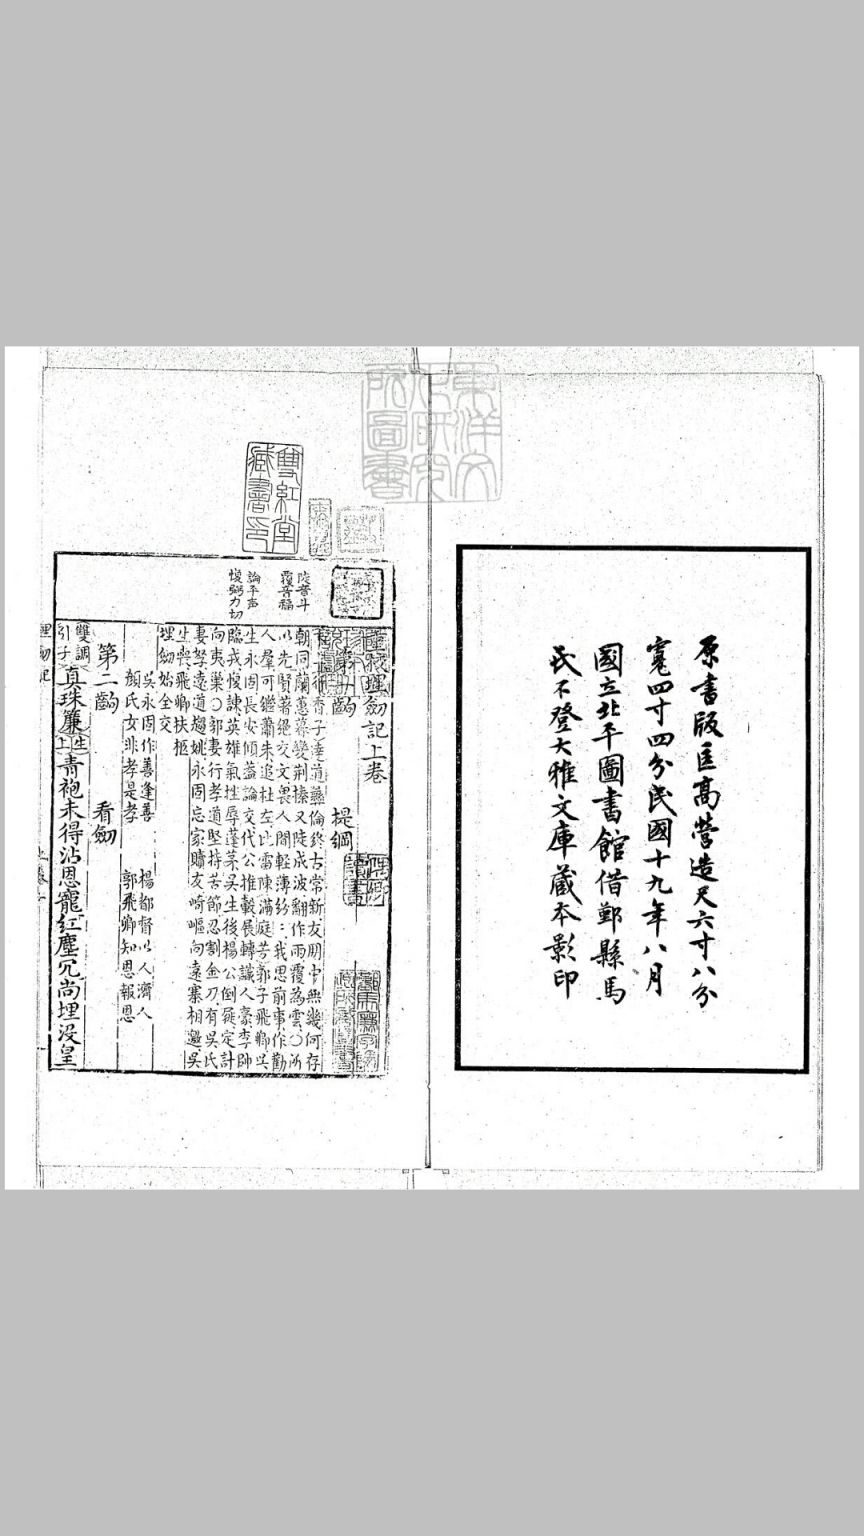 原書版匡高營造尺六寸八分
寬四寸四分民國十九年八月
國立北平圖書館借鄞縣馬
氏不登大雅文庫藏本影印
東洋文
化研究
所圖書
雙紅堂
藏書印
陡音斗
覆音福
論平声
愎弼力切
埋劒記上卷
提綱
朝同蘭蕙暮變荆榛又陡成波翻作雨覆為雲○所
以先賢著絕交文畏人間輕薄紛〻我思前事作勸
人羣可繼蕭朱追杜左比雷陳滿庭芳郭子飛卿吳
生永固長安傾蓋論交代公推轂展轉識人豪李師
臨戎愎諫英雄氣挫辱蓬蒿吳生後楊公倒屣定計
向夷巢○郭妻行孝道堅持苦節忍割金刀有吳氏
妻孥遠道趨姚永固忘家贖友崎嶇向遠寨相邀吳
生喪飛卿扶柩
埋劒始全交
吳永固作善逢善 楊都督以人濟人
顏氏女非孝是孝 郭飛卿知恩報恩
第二齣 看劒
雙調引子真珠簾上生青袍未得沾恩寵紅塵冗尚埋沒皇